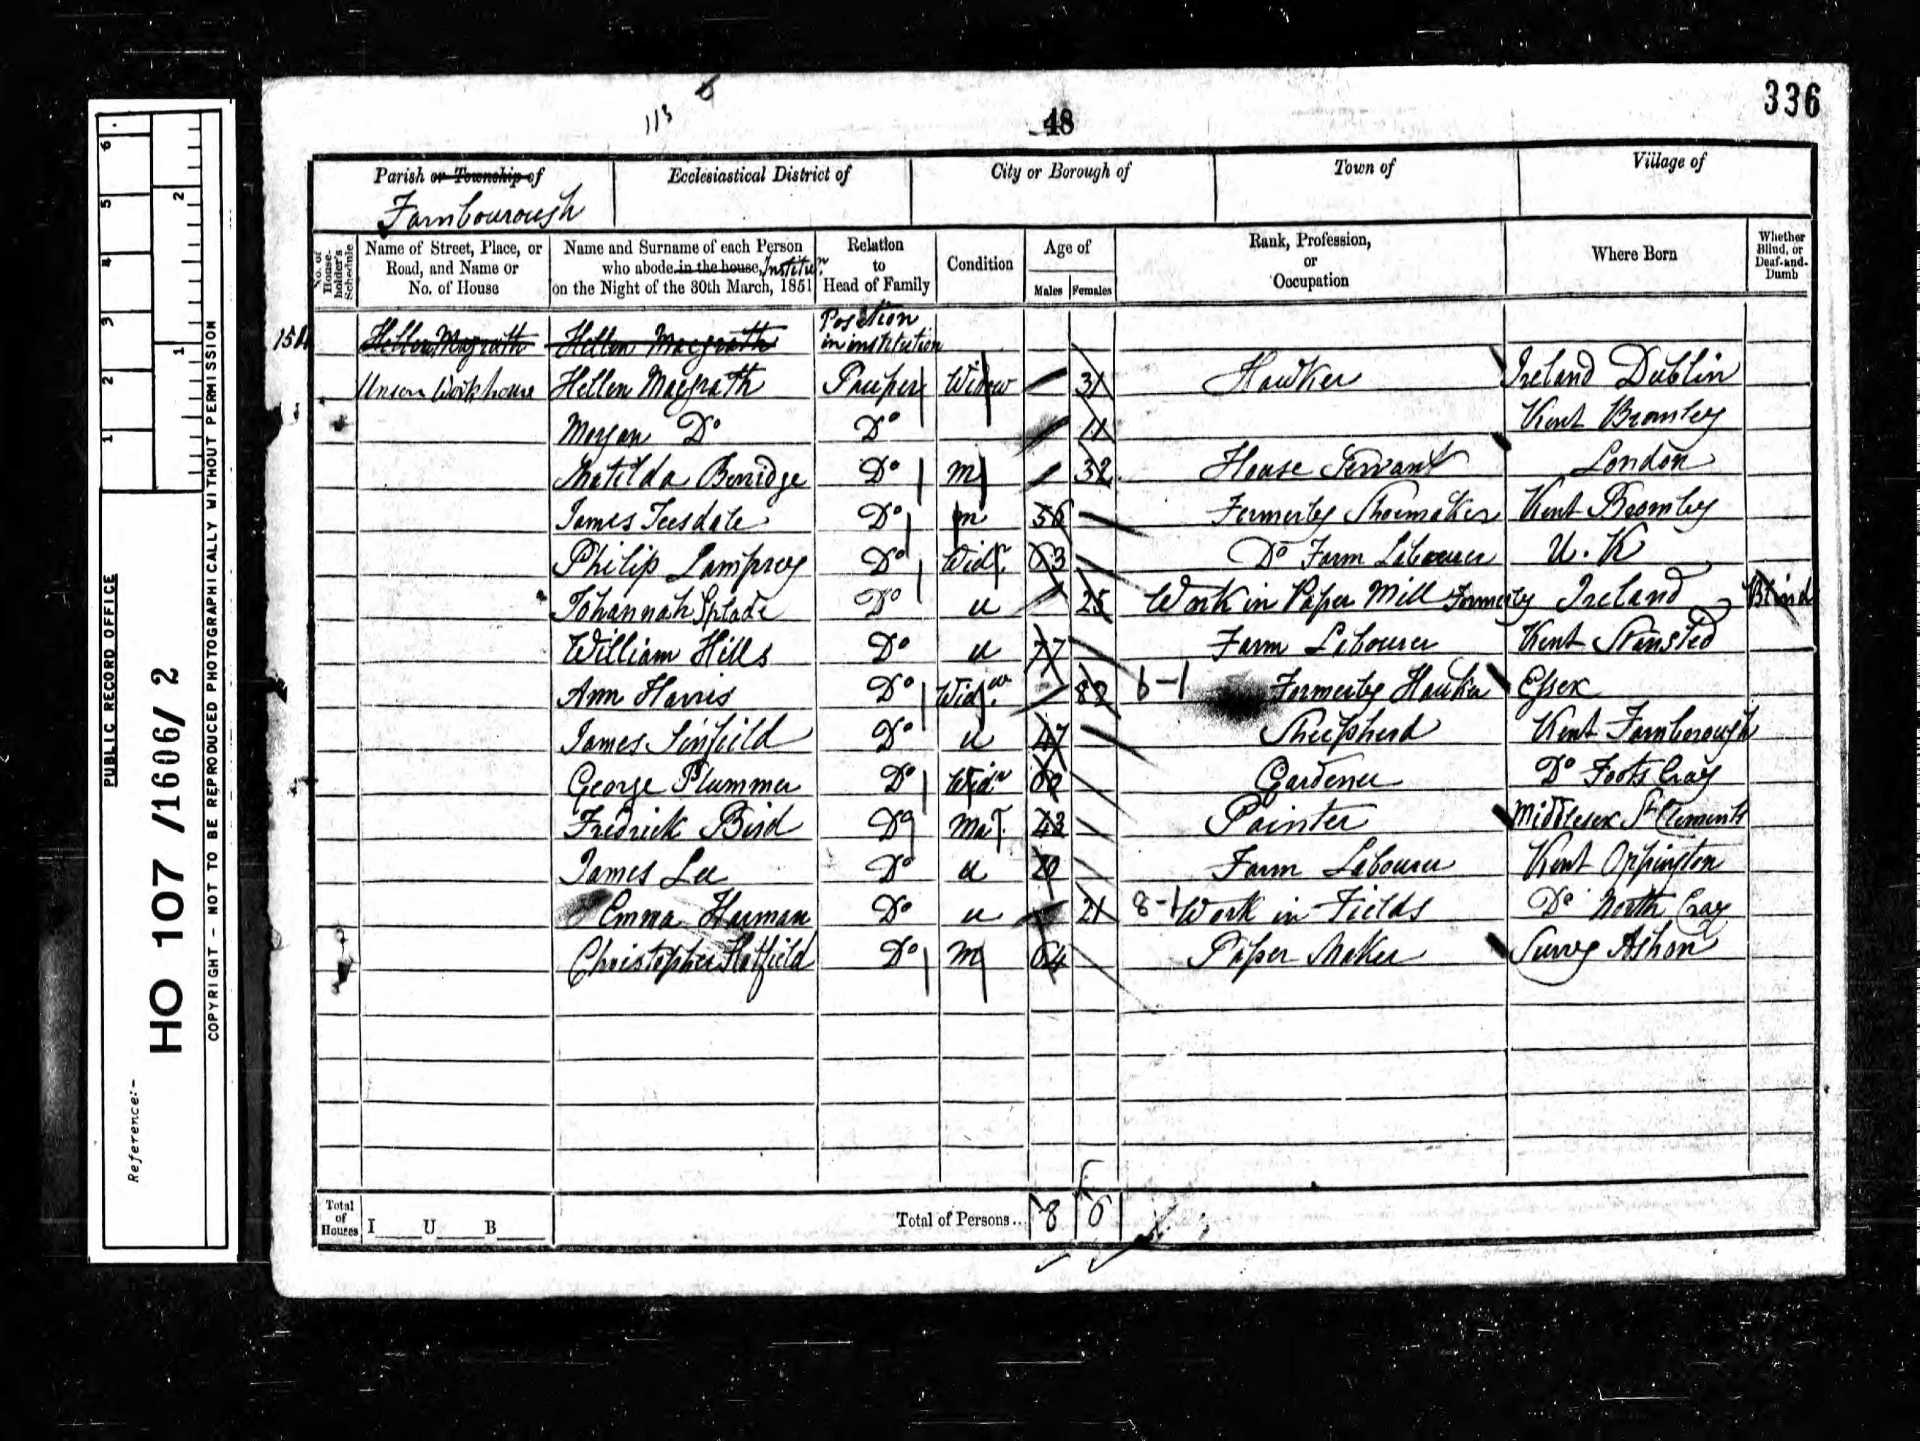 336
113
48
Parish or Township of Ecclesiastical District of City or Borough of Town of Village of
Farnbourough
No. of House-holder's Schedule
Name of Street, Place, or Road, and Name or No. of House
Name and Surname of each Person who abode in the house, Institun on the Night of the 30th March, 1851
Relation to Head of Family
Condition
Age of
Males Females
Rank, Profession, or Occupation
Where Born
Whether Blind, or Deaf-and-Dumb
Position in institution
Hellen Magrath Hellen Macgrath
Union Workhouse Hellen Macgrath Pauper Widow 31 Hawker Ireland Dublin
Do Do 11 Kent Bromley
Matilda Do m 32 House Servant London
James Teesdale Do m 56 Formerly Shoemaker Kent Bromley
Philip Lamprey Do Widr 63 Do Farm Labourer U.K
Johannah Do u 25 Work in Paper Mill Formerly Ireland Blind
William Hills Do u 77 Farm Labourer Kent Stansted
Ann Harris Do Widw 82 6-1 Formerly Hawker Essex
James Sinfield Do u 47 Sheepherd Kent Farnborough
George Plummer Do Widr 60 Gardener Do Foots Cray
Fredrick Bird Do Mar. 43 Painter Middlesex St Clements
James Lee Do u 20 Farm Labourer Kent Orpington
Emma Harman Do u 21 8-1 Work in Fields Do North Cray
Christopher Hatfield Do m 64 Paper Maker Surrey
Total of Houses I U B Total of Persons.. 8 6
PUBLIC RECORD OFFICE
Reference:-
HO 107 /1606/ 2
COPYRIGHT - NOT TO BE REPRODUCED PHOTOGRAPHICALLY WITHOUT PERMISSION
1 2 3 4 5 6
1 2